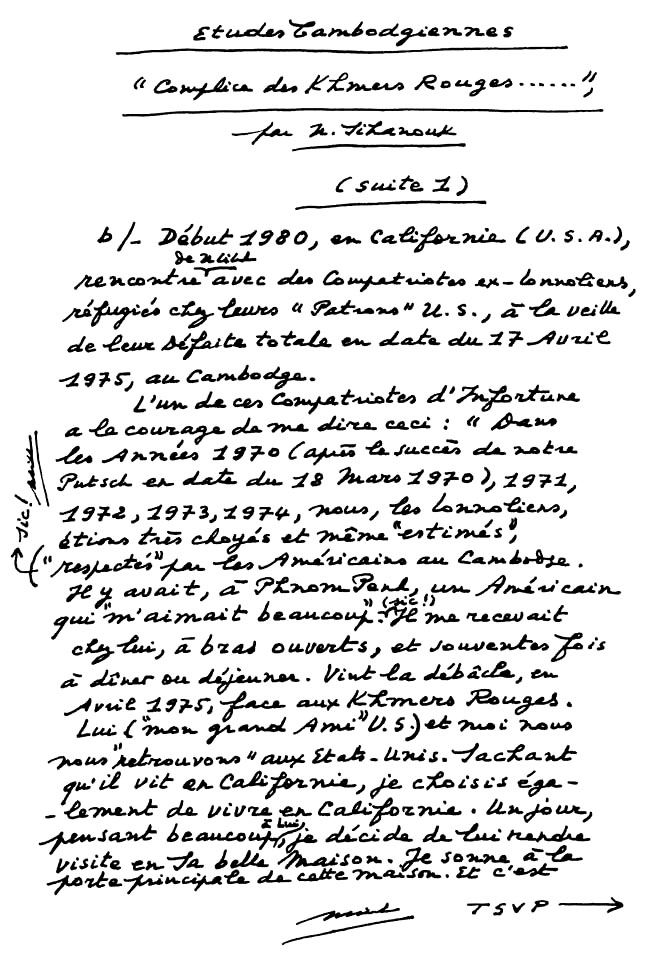 Etudes Cambodgiennes
"Complice des Khmers Rouges......",
par N. Sihanouk
(suite 1)
b/- Début 1980, en Californie (U.S.A.),
de N. Sihk
rencontre avec des Compatriotes ex-lonnoliens,
réfugiés chez leurs "Patrons" U.S., à la veille
de leur Défaite totale en date du 17 Avril
1975, au Cambodge.
L'un de ces Compatriotes d'Infortune
a le courage de me dire ceci : "Dans
les Années 1970 (après le succès de notre
Putsch en date du 18 Mars 1970), 1971,
1972, 1973, 1974, nous, les lonnoliens,
étions très choyés et même "estimés",
sic!
"respectés" par les Américains au Cambodge.
Il y avait, à Phnom Penh, un Américain
qui "m'aimait beaucoup". (sic!) Il me recevait
chez lui, à bras ouverts, et souventes fois
à dîner ou déjeuner. Vint la débâcle, en
Avril 1975, face aux Khmers Rouges.
Lui ("mon grand Ami" U.S) et moi nous
nous "retrouvons" aux Etats-Unis. Sachant
qu'il vit en Californie, je choisis éga-
-lement de vivre en Californie. Un jour,
pensant beaucoup à Lui, je décide de lui rendre
visite en Sa belle Maison. Je sonne à la
porte principale de cette maison. Et c'est
TSVP →